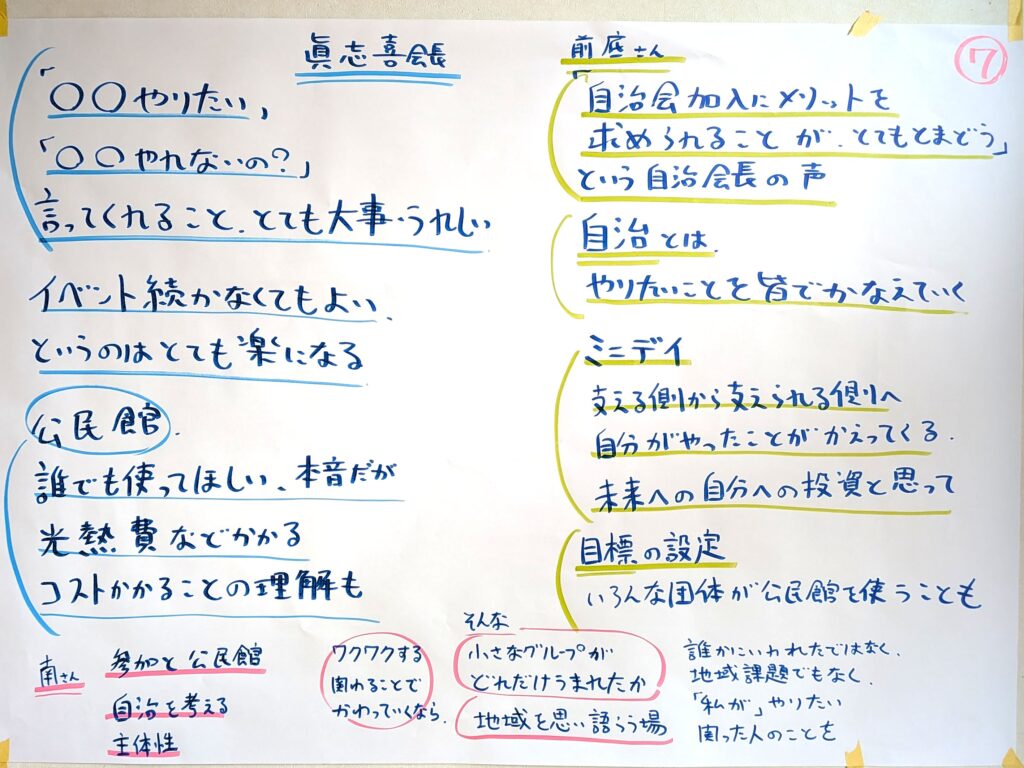 眞志喜会長
「〇〇やりたい」
「〇〇やれないの?」
言ってくれること、とても大事・うれしい
イベント続かなくてもよい、
というのはとても楽になる
公民館
誰でも使ってほしい、本音だが
光熱費などかかる
コストかかることの理解も
前底さん
⑦
「自治会加入にメリットを
求められることが、とてもとまどう」
という自治会長の声
自治とは、
やりたいことを皆でかなえていく
ミニデイ
支える側から支えられる側へ
自分がやったことがかえってくる、
未来への自分への投資と思って
目標の設定
いろんな団体が公民館を使うことも
南さん
参加と公民館
自治を考える
主体性
ワクワクする
関わることで
かわっていくなら、
そんな
小さなグループが
どれだけうまれたか
地域を思い語らう場
誰かにいわれたではなく、
地域課題でもなく、
「私が」やりたい
関った人のことを